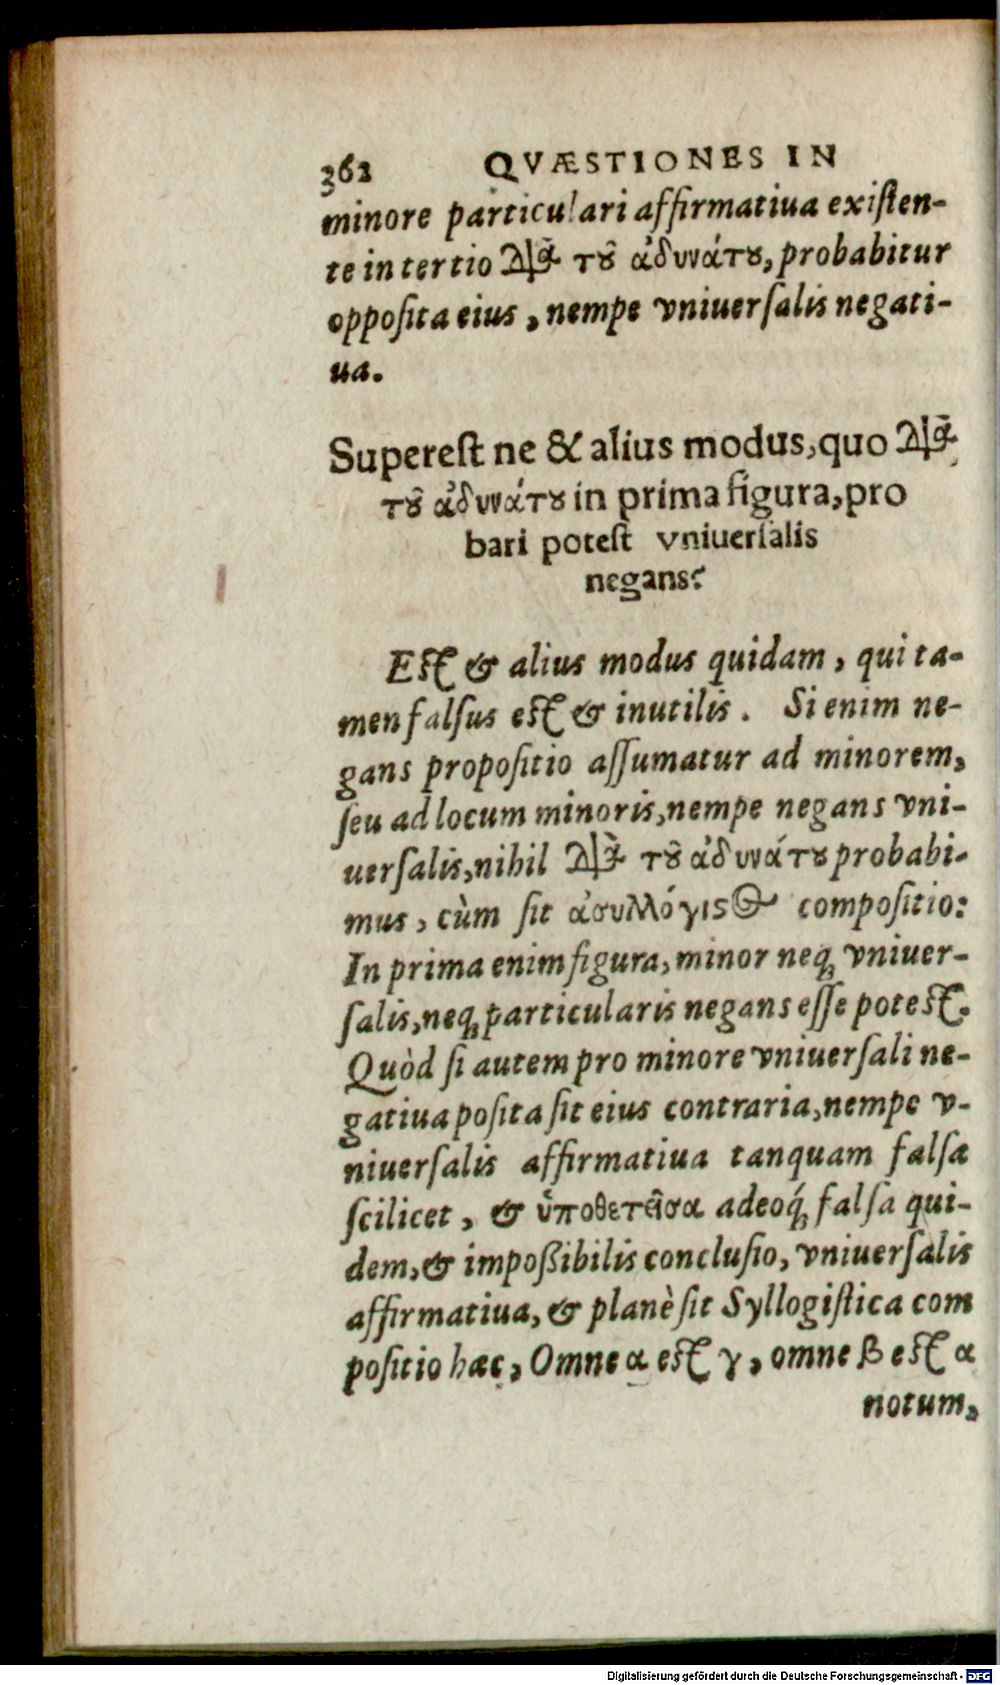 362 QVÆSTIONES IN
minore particulari affirmatiua existen-
te in tertio Διὰ τοῦ ἀδυνάτου, probabitur
opposita eius, nempe vniuersalis negati-
ua.
Superest ne & alius modus, quo Διὰ
τοῦ ἀδυνάτου in prima figura, pro
bari potest vniuersalis
negans?
Est & alius modus quidam, qui ta-
men falsus est & inutilis. Si enim ne-
gans propositio assumatur ad minorem,
seu ad locum minoris, nempe negans vni-
uersalis, nihil Διὰ τοῦ ἀδυνάτου probabi-
mus, cùm sit ἀσυλλόγιστος compositio:
In prima enim figura, minor neq; vniuer-
salis, neq; particularis negans esse potest.
Quòd si autem pro minore vniuersali ne-
gatiua posita sit eius contraria, nempe v-
niuersalis affirmatiua tanquam falsa
scilicet, & ὑποθετεῖσα adeoq́; falsa qui-
dem, & impoßibilis conclusio, vniuersalis
affirmatiua, & planè sit Syllogistica com
positio hæc, Omne α est γ, omne β est α
notum,
Digitalisierung gefördert durch die Deutsche Forschungsgemeinschaft - DFG